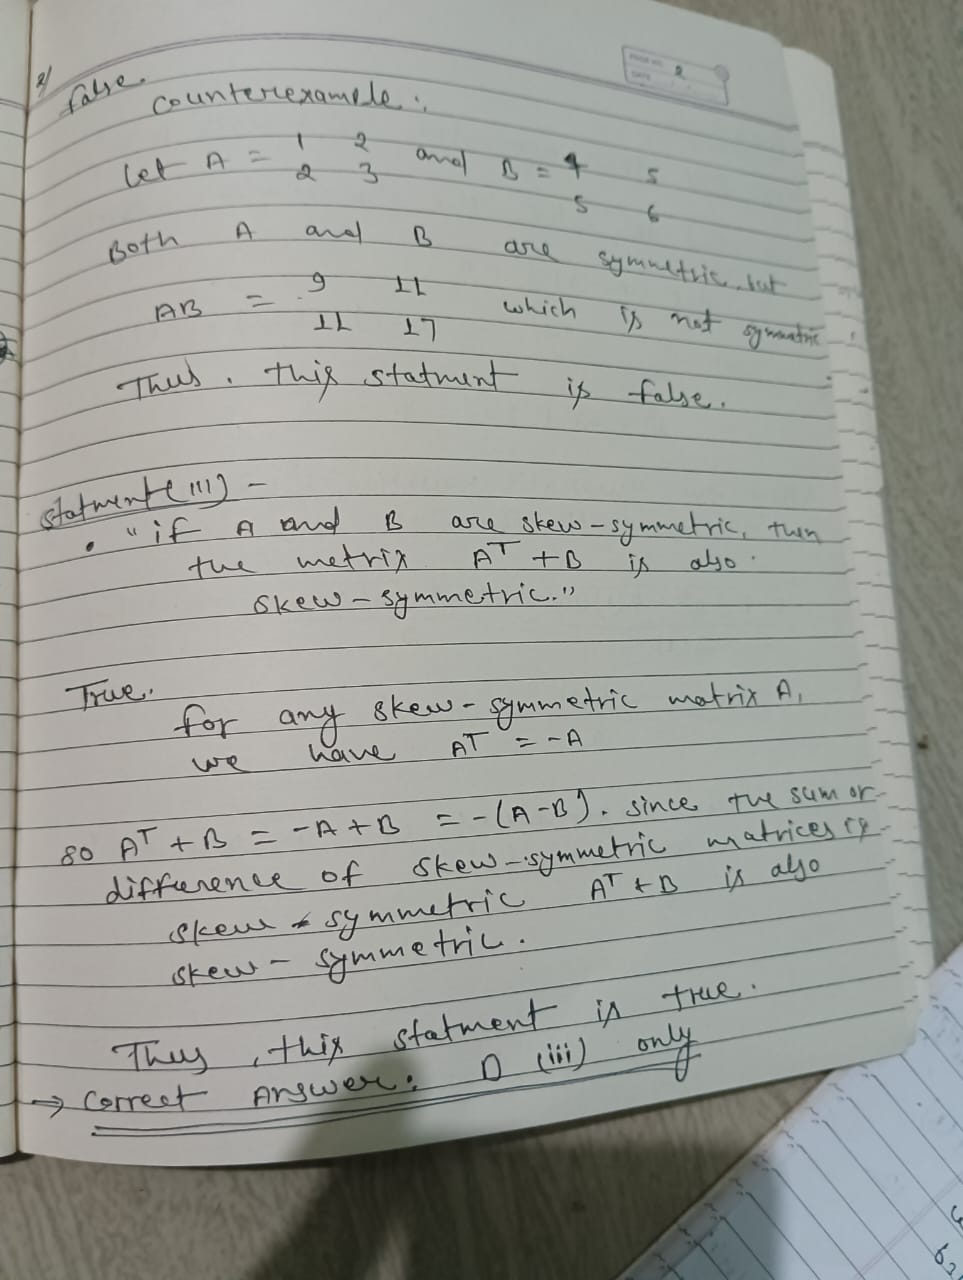 2/
false.
PAGE NO. 2
DATE
counterexample:
Let A = 1 2 and B = 4 5
2 3 5 6
Both A and B are symmetric, but
AB = 9 11 which is not symmetric
11 17
Thus, this statment is false.
statment(III) -
• "if A and B are skew-symmetric, then
the metrix Aᵀ + B is also
skew-symmetric."
True.
for any skew-symmetric matrix A,
we have Aᵀ = -A
so Aᵀ + B = -A + B = -(A-B). since the sum or
difference of skew-symmetric matrices is
skew-symmetric Aᵀ + B is also
skew-symmetric.
Thus, this statment is true.
→ correct Answer: D (iii) only